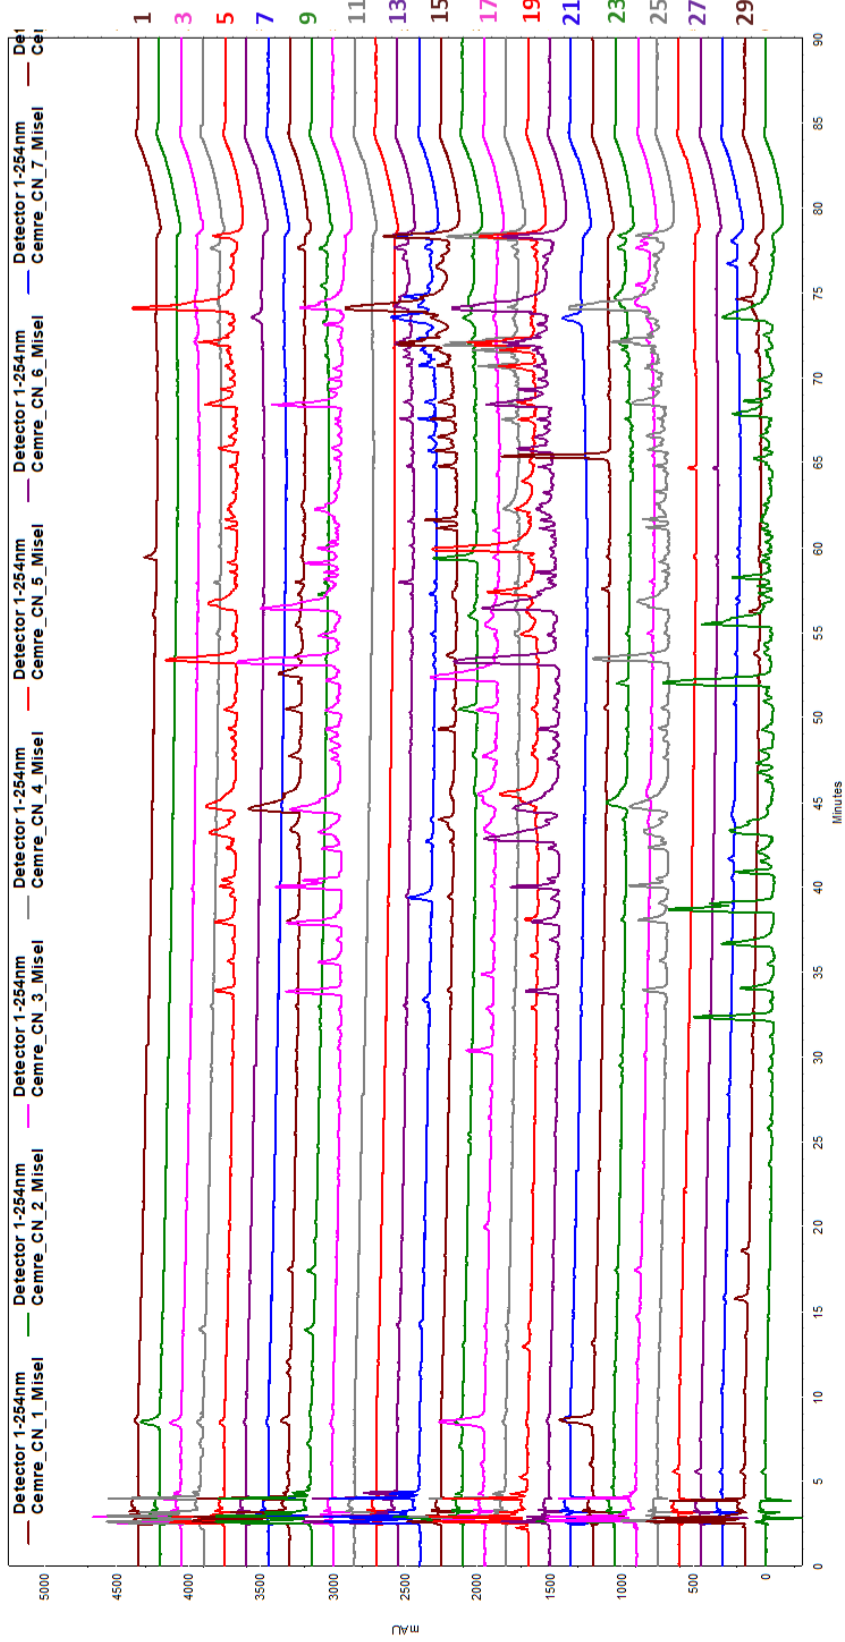 Detector 1-254nm
Cemre_CN_1_Misel
Detector 1-254nm
Cemre_CN_2_Misel
Detector 1-254nm
Cemre_CN_3_Misel
Detector 1-254nm
Cemre_CN_4_Misel
Detector 1-254nm
Cemre_CN_5_Misel
Detector 1-254nm
Cemre_CN_6_Misel
Detector 1-254nm
Cemre_CN_7_Misel
Det
Cei
1
3
5
7
9
11
13
15
17
19
21
23
25
27
29
5000
4500
4000
3500
3000
2500
2000
1500
1000
500
0
mAU
0
5
10
15
20
25
30
35
40
45
50
55
60
65
70
75
80
85
90
Minutes